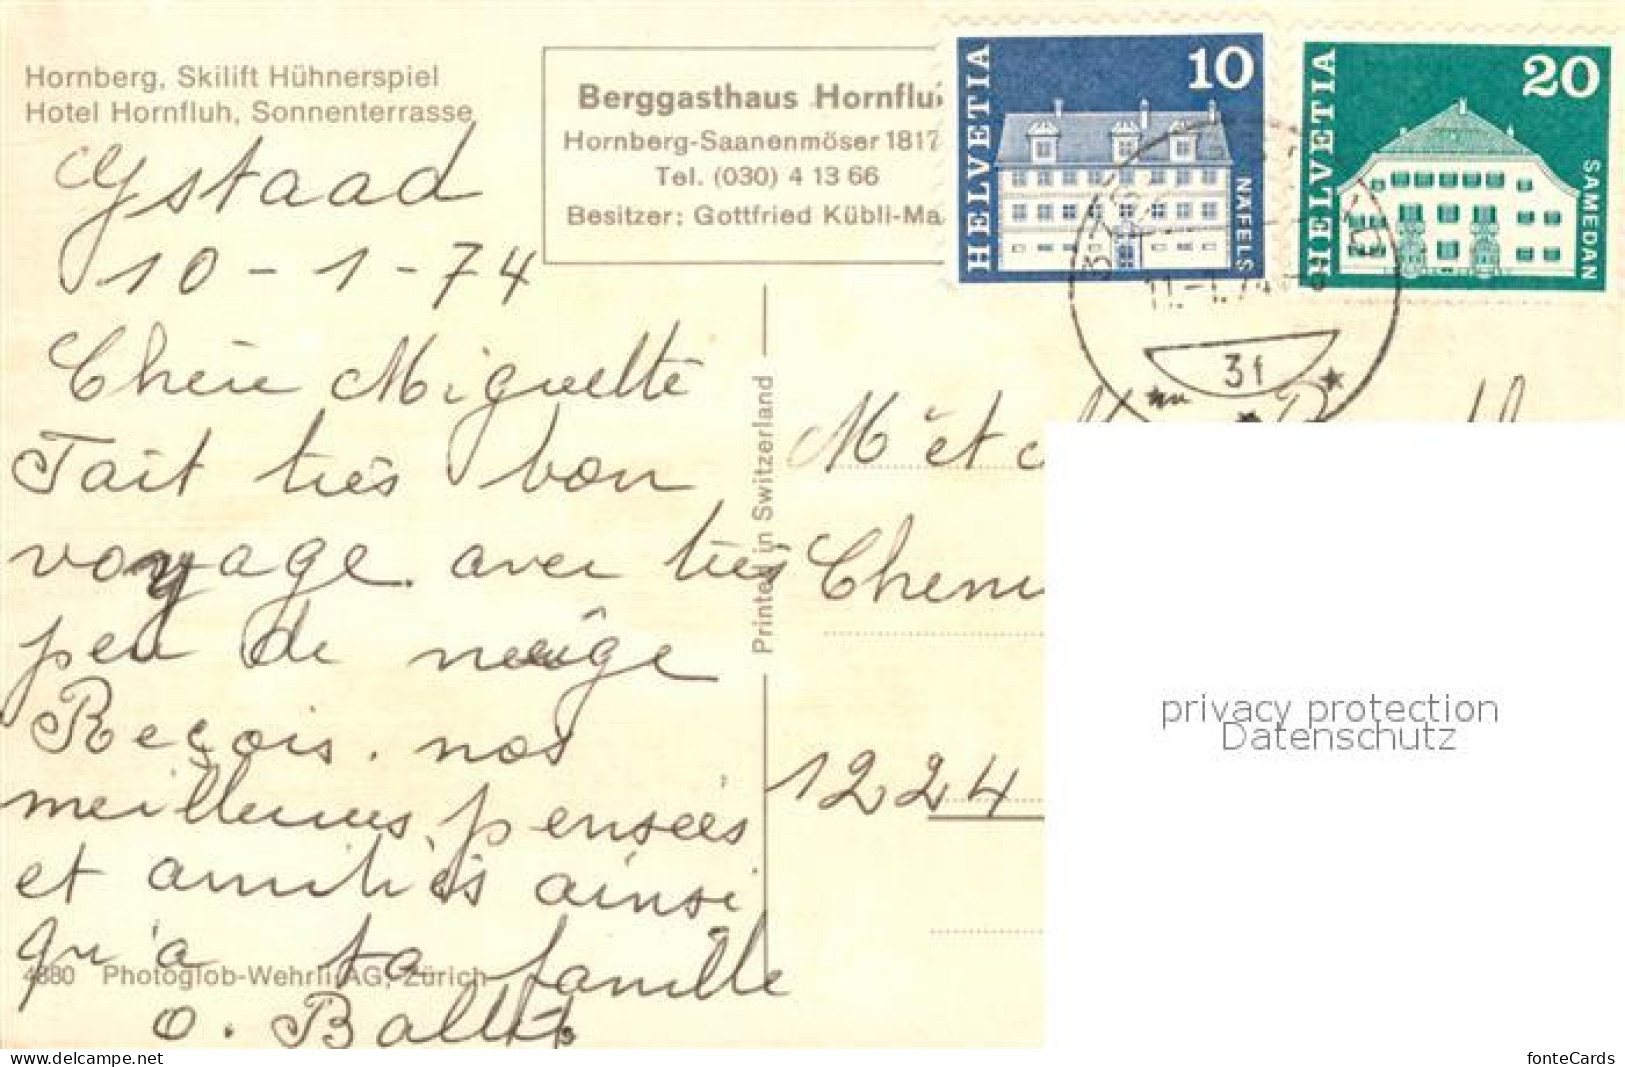 Hornberg, Skilift Hühnerspiel
Hotel Hornfluh, Sonnenterrasse
Berggasthaus Hornflu
Hornberg-Saanenmöser 1817
Tel. (030) 4 13 66
Besitzer: Gottfried Kübli-Ma
HELVETIA 10 NÄFELS
HELVETIA 20 SAMEDAN
11.-1.74
3f
Gstaad
10-1-74
Chère Miguette
Fait très bon
voyage. avec très
peu de neige
Reçois. nos
meilleures pensées
et amitiés ainsi
qu'à ta famille
O.
Printed in Switzerland
M et
Chemi
1224
4880 Photoglob-Wehrli AG, Zürich
privacy protection
Datenschutz
www.delcampe.net
fonteCards